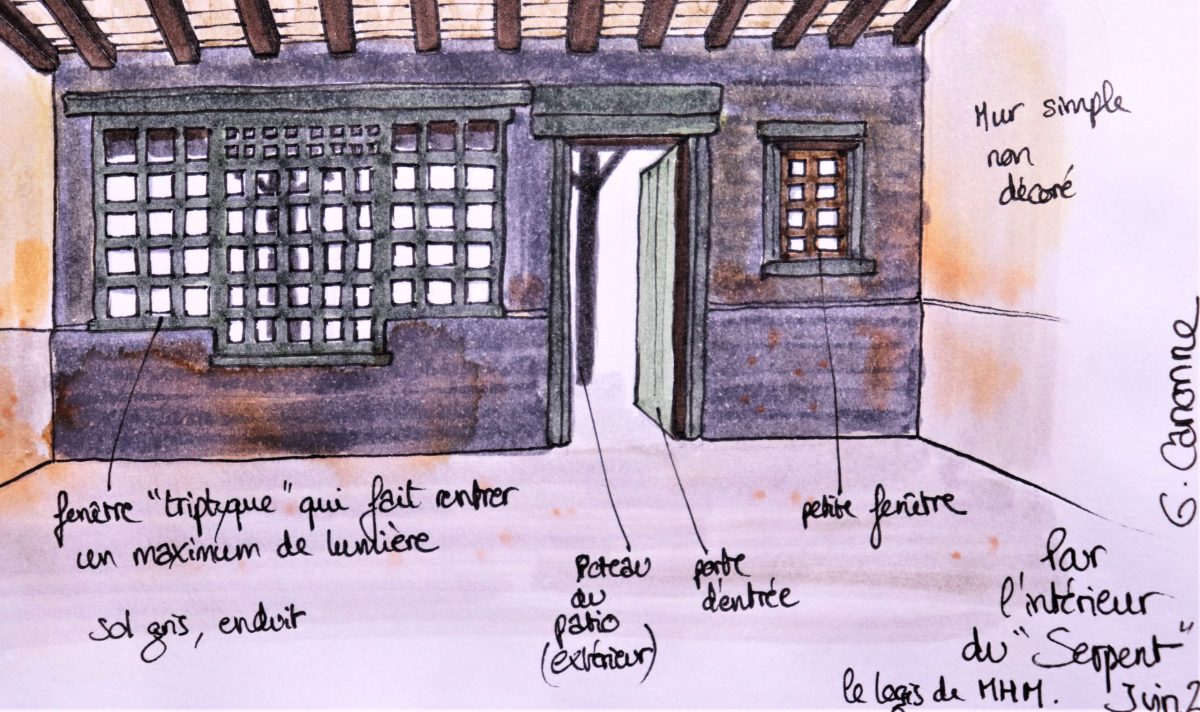 Mur simple
non
décoré
G. Canonne
fenêtre "triptyque" qui fait rentrer
un maximum de lumière
petite fenêtre
Poteau
du
patio
(extérieur)
porte
d'entrée
sol gris, enduit
Par
l'intérieur
du "Serpent"
le logis de MHM.
Juin 2